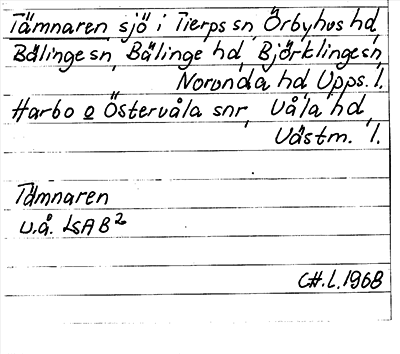 Tämnaren sjö i Tierps sn, Örbyhus hd,
Bälinge sn, Bälinge hd, Björklinge sn,
Norunda hd Upps. l.
Harbo o Östervåla snr, Våla hd,
Västm. l.
Tämnaren
u.å. LSA B2
CH.L.1968